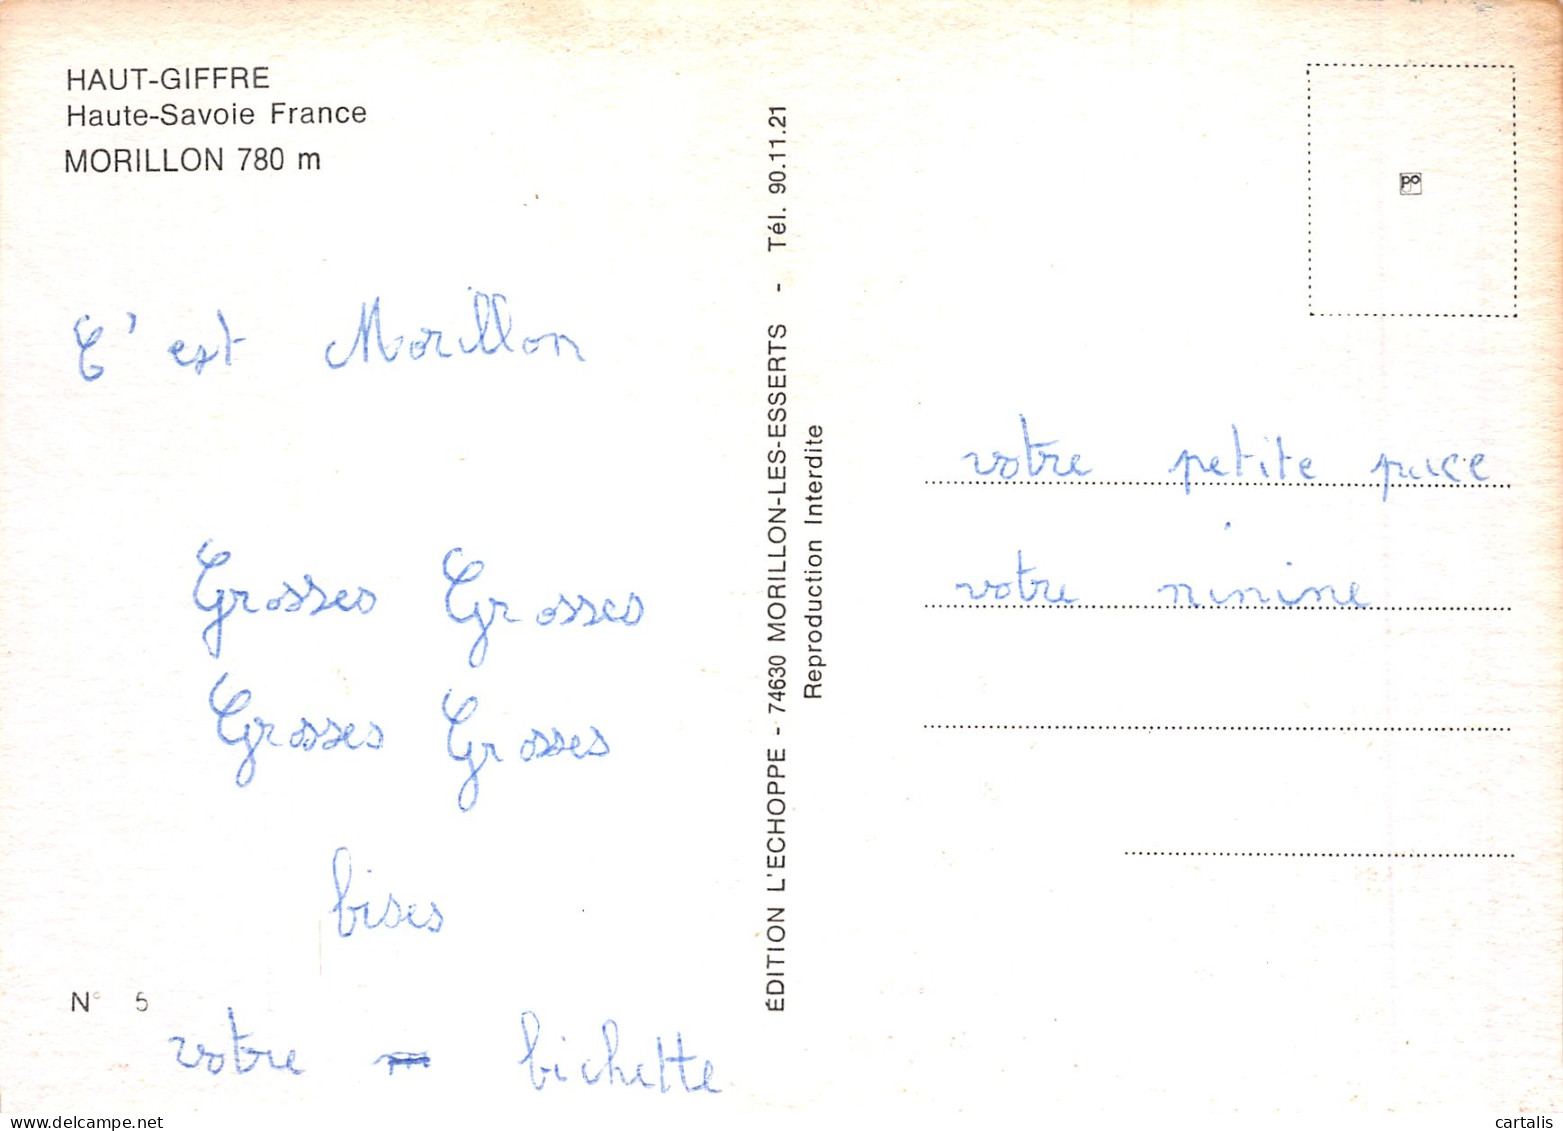 HAUT-GIFFRE
Haute-Savoie France
MORILLON 780 m
C'est Morillon
Grosses Grosses
Grosses Grosses
bises
N° 5
votre bichette
ÉDITION L'ECHOPPE - 74630 MORILLON-LES-ESSERTS - Tél. 90.11.21
Reproduction Interdite
po
votre petite puce
votre ninine
delcampe.net
cartalis